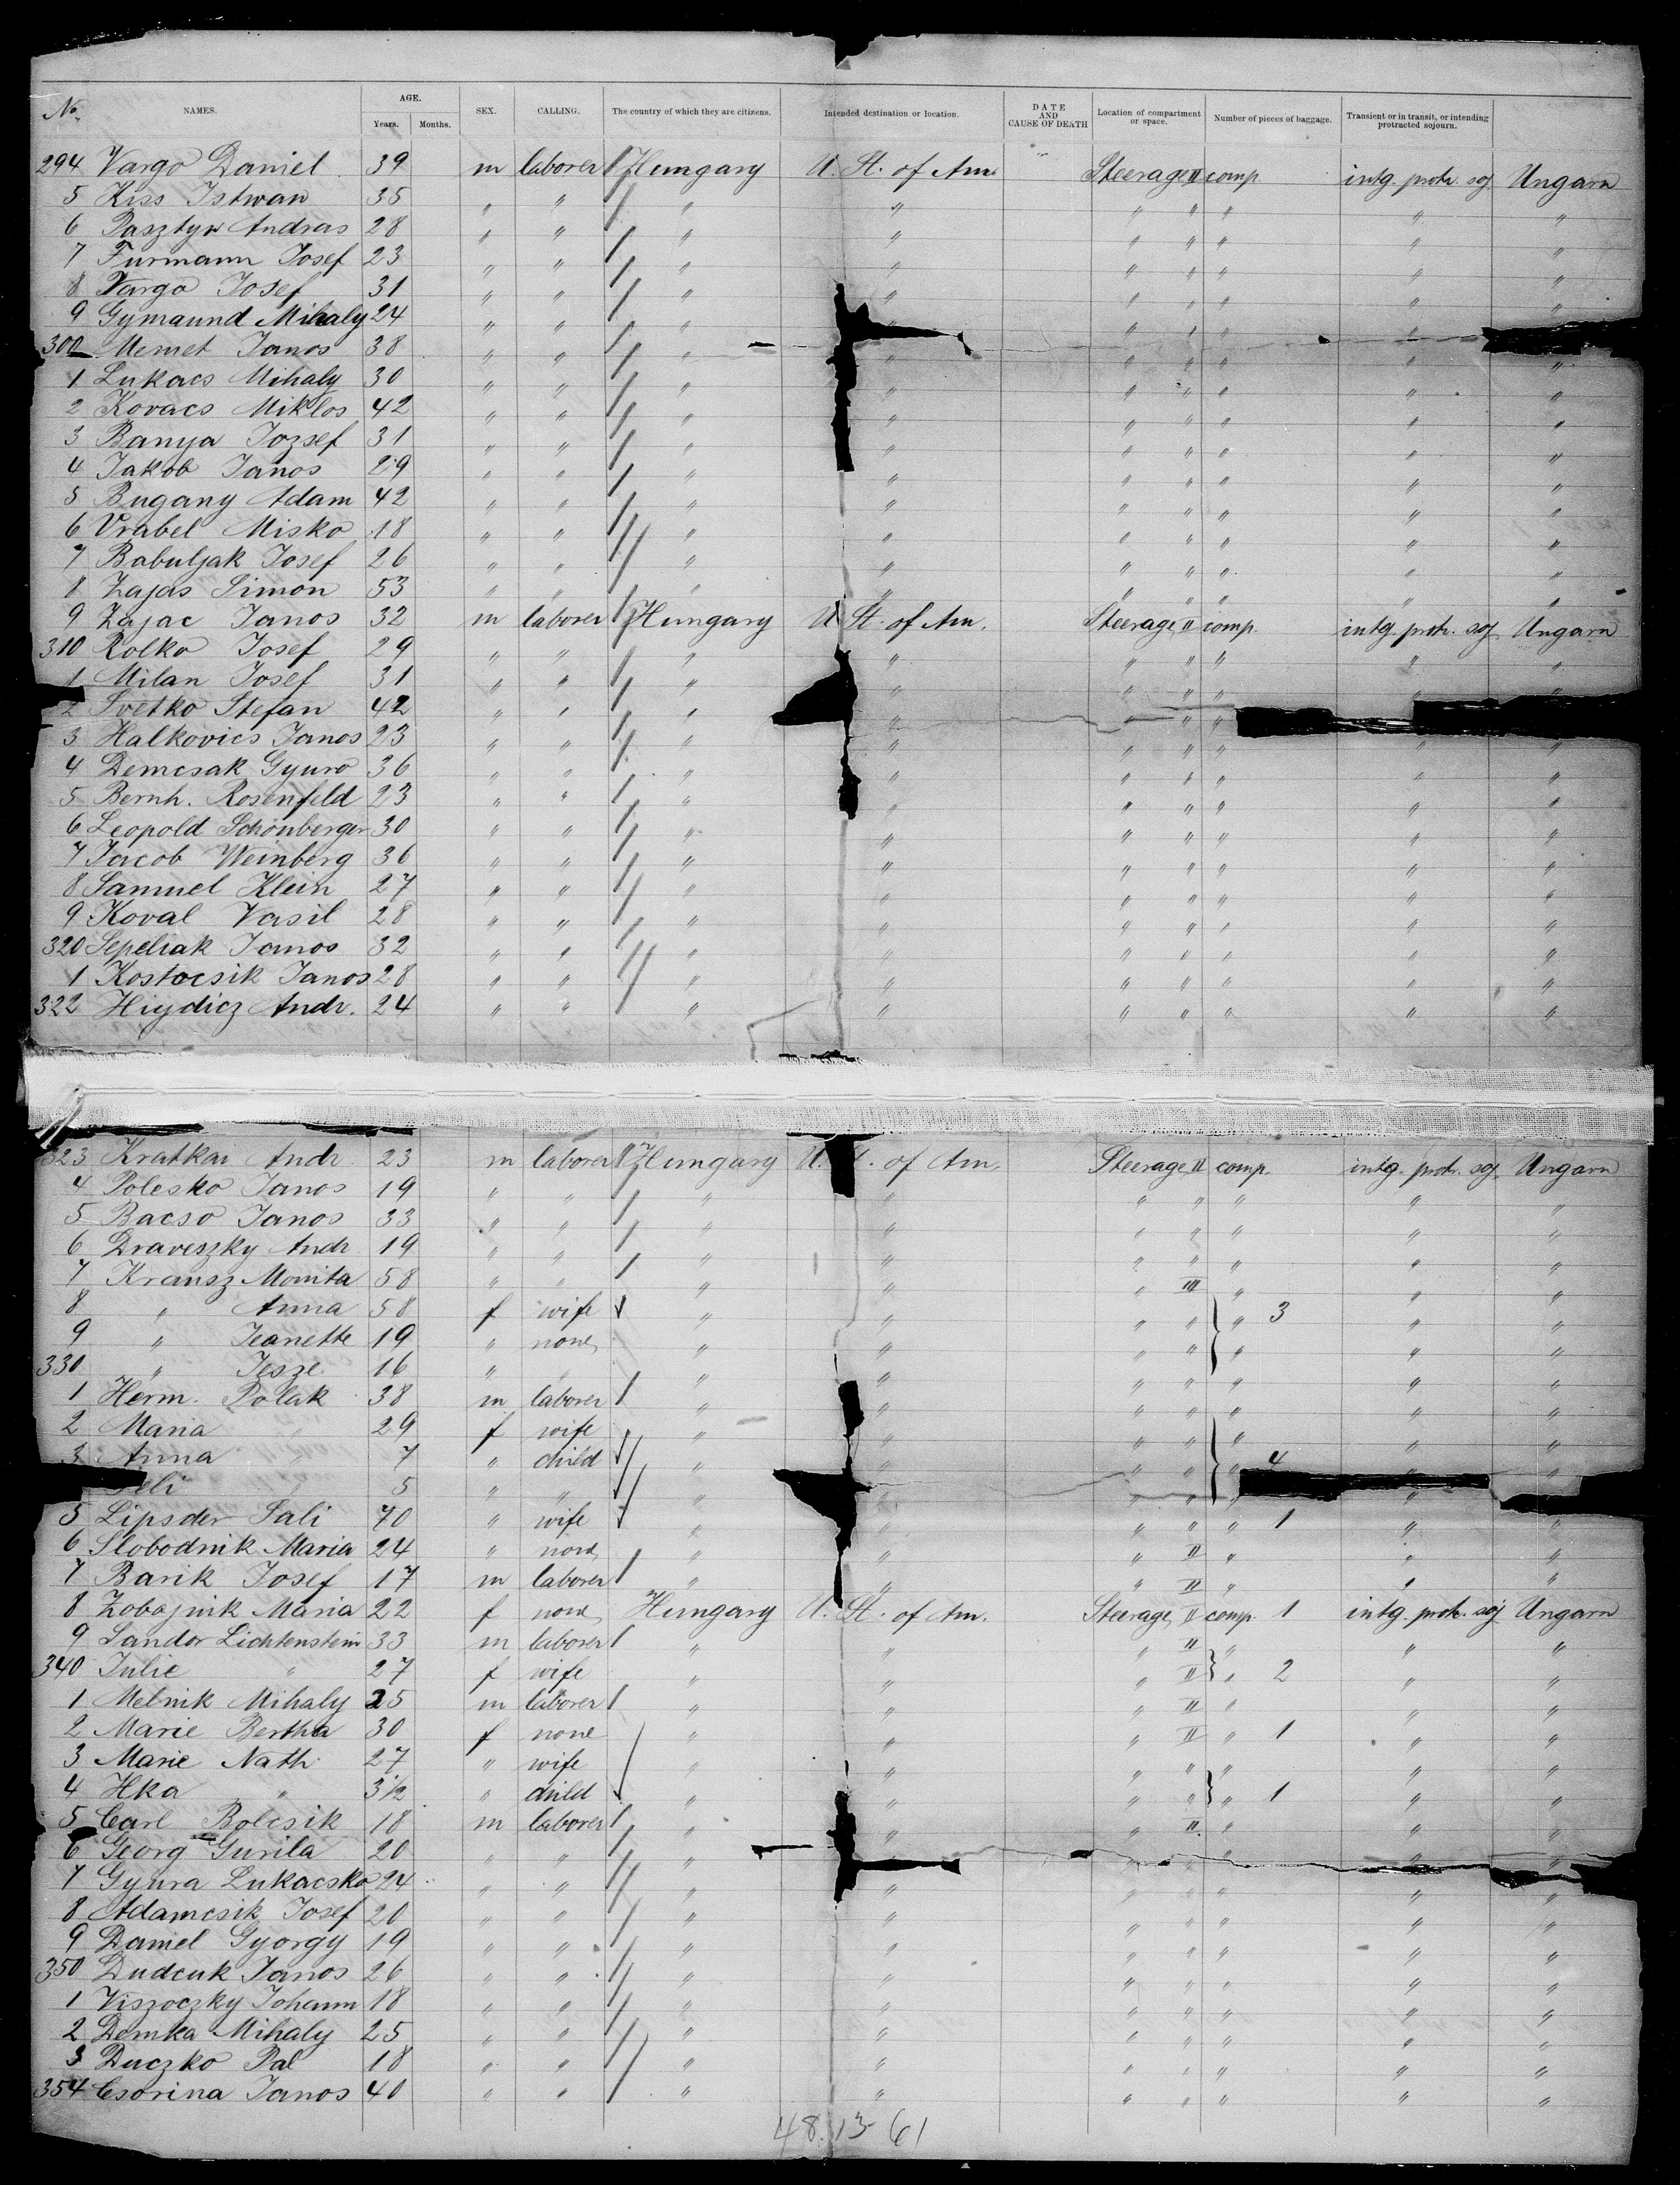 No. NAMES. AGE. Years. Months. SEX. CALLING. The country of which they are citizens. Intended destination or location. DATE AND CAUSE OF DEATH Location of compartment or space. Number of pieces of baggage. Transient or in transit, or intending protracted sojourn.
294 Vargo Daniel 39 m laborer Hungary U. St. of Am. Steerage II comp. intg. protr. soj. Ungarn
5 Kiss Istwan 35 " " " " " " " " "
6 Pasztyr Andras 28 " " " " " " " " "
7 Furmann Josef 23 " " " " " " " " "
8 Vargo Josef 31 " " " " " " " " "
9 Gymaund Mihaly 24 " " " " " " " "
300 Memet Janos 38 " " " " " " " " "
1 Lukacs Mihaly 30 " " " " " " " " "
2 Kovacs Miklos 42 " " " " " " " " "
3 Banya Jozsef 31 " " " " " " " " "
4 Jakob Janos 29 " " " " " " " " "
5 Bugany Adam 42 " " " " " " " " "
6 Vrabel Misko 18 " " " " " " " " "
7 Babuljak Josef 26 " " " " " " " " "
8 Zajas Simon 53 " " " " " " " " "
9 Zajac Janos 32 m laborer Hungary U. St. of Am. Steerage II comp. intg. protr. soj. Ungarn
310 Rolko Josef 29 " " " " " " " " "
1 Milan Josef 31 " " " " " " " " "
2 Svetko Stefan 42 " " " " " " "
3 Halkovics Janos 23 " " " " " " " " "
4 Demcsak Gyuro 36 " " " " " " " " "
5 Bernh. Rosenfeld 23 " " " " " " " " "
6 Leopold Schönberger 30 " " " " " " " " "
7 Jacob Weinberg 36 " " " " " " " " "
8 Samuel Klein 27 " " " " " " " " "
9 Koval Vasil 28 " " " " " " " " "
320 Sepeliak Janos 32 " " " " " " " " "
1 Kostocsik Janos 28 " " " " " " " " "
322 Hiydicz Andr. 24 " " " " " " " " "
323 Kratkai Andr. 23 m laborer Hungary U. St. of Am. Steerage II comp. intg. protr. soj. Ungarn
4 Polesko Janos 19 " " " " " " " " "
5 Bacso Janos 33 " " " " " " " " "
6 Draveszky Andr. 19 " " " " " " " " "
7 Krausz Monita 58 " " " " " III " " "
8 " Anna 58 f wife " " " " " 3 " "
9 " Jeanette 19 " none " " " " " " "
330 " Jesze 16 " " " " " " " " "
1 Herm. Polak 38 m laborer " " " " " " "
2 Maria " 29 f wife " " " " " " "
3 Anna " 7 " child " " " " " 4 " "
Feli " 5 " " " " " " " "
5 Lipsder Sali 70 " wife " " " " " 1 " "
6 Slobodnik Maria 24 " none " " " II " " "
7 Barik Josef 17 m laborer " " " II " " "
8 Zobajnik Maria 22 f none Hungary U. St. of Am. Steerage II comp. 1 intg. protr. soj. Ungarn
9 Sandor Lichtenstein 33 m laborer " " " II " " "
340 Julie " 27 f wife " " " II " 2 " "
1 Melnik Mihaly 25 m laborer " " " II " " "
2 Marie Bertha 30 f none " " " II " 1 " "
3 Marie Nath. 27 " wife " " " " " " "
4 Ilka " 3½ " child " " " " " 1 " "
5 Carl Bolcsik 18 m laborer " " " II " " "
6 Georg Gurila 20 " " " " " " " " "
7 Gyura Lukacsko 24 " " " " " " " " "
8 Adamcsik Josef 20 " " " " " " " " "
9 Daniel Gyorgy 19 " " " " " " " " "
350 Dudcuk Janos 26 " " " " " " " " "
1 Viszoczky Johann 18 " " " " " " " " "
2 Demka Mihaly 25 " " " " " " " " "
3 Duczko Pal 18 " " " " " " " " "
354 Csorina Janos 40 " " " " " " " " "
48. 13 61